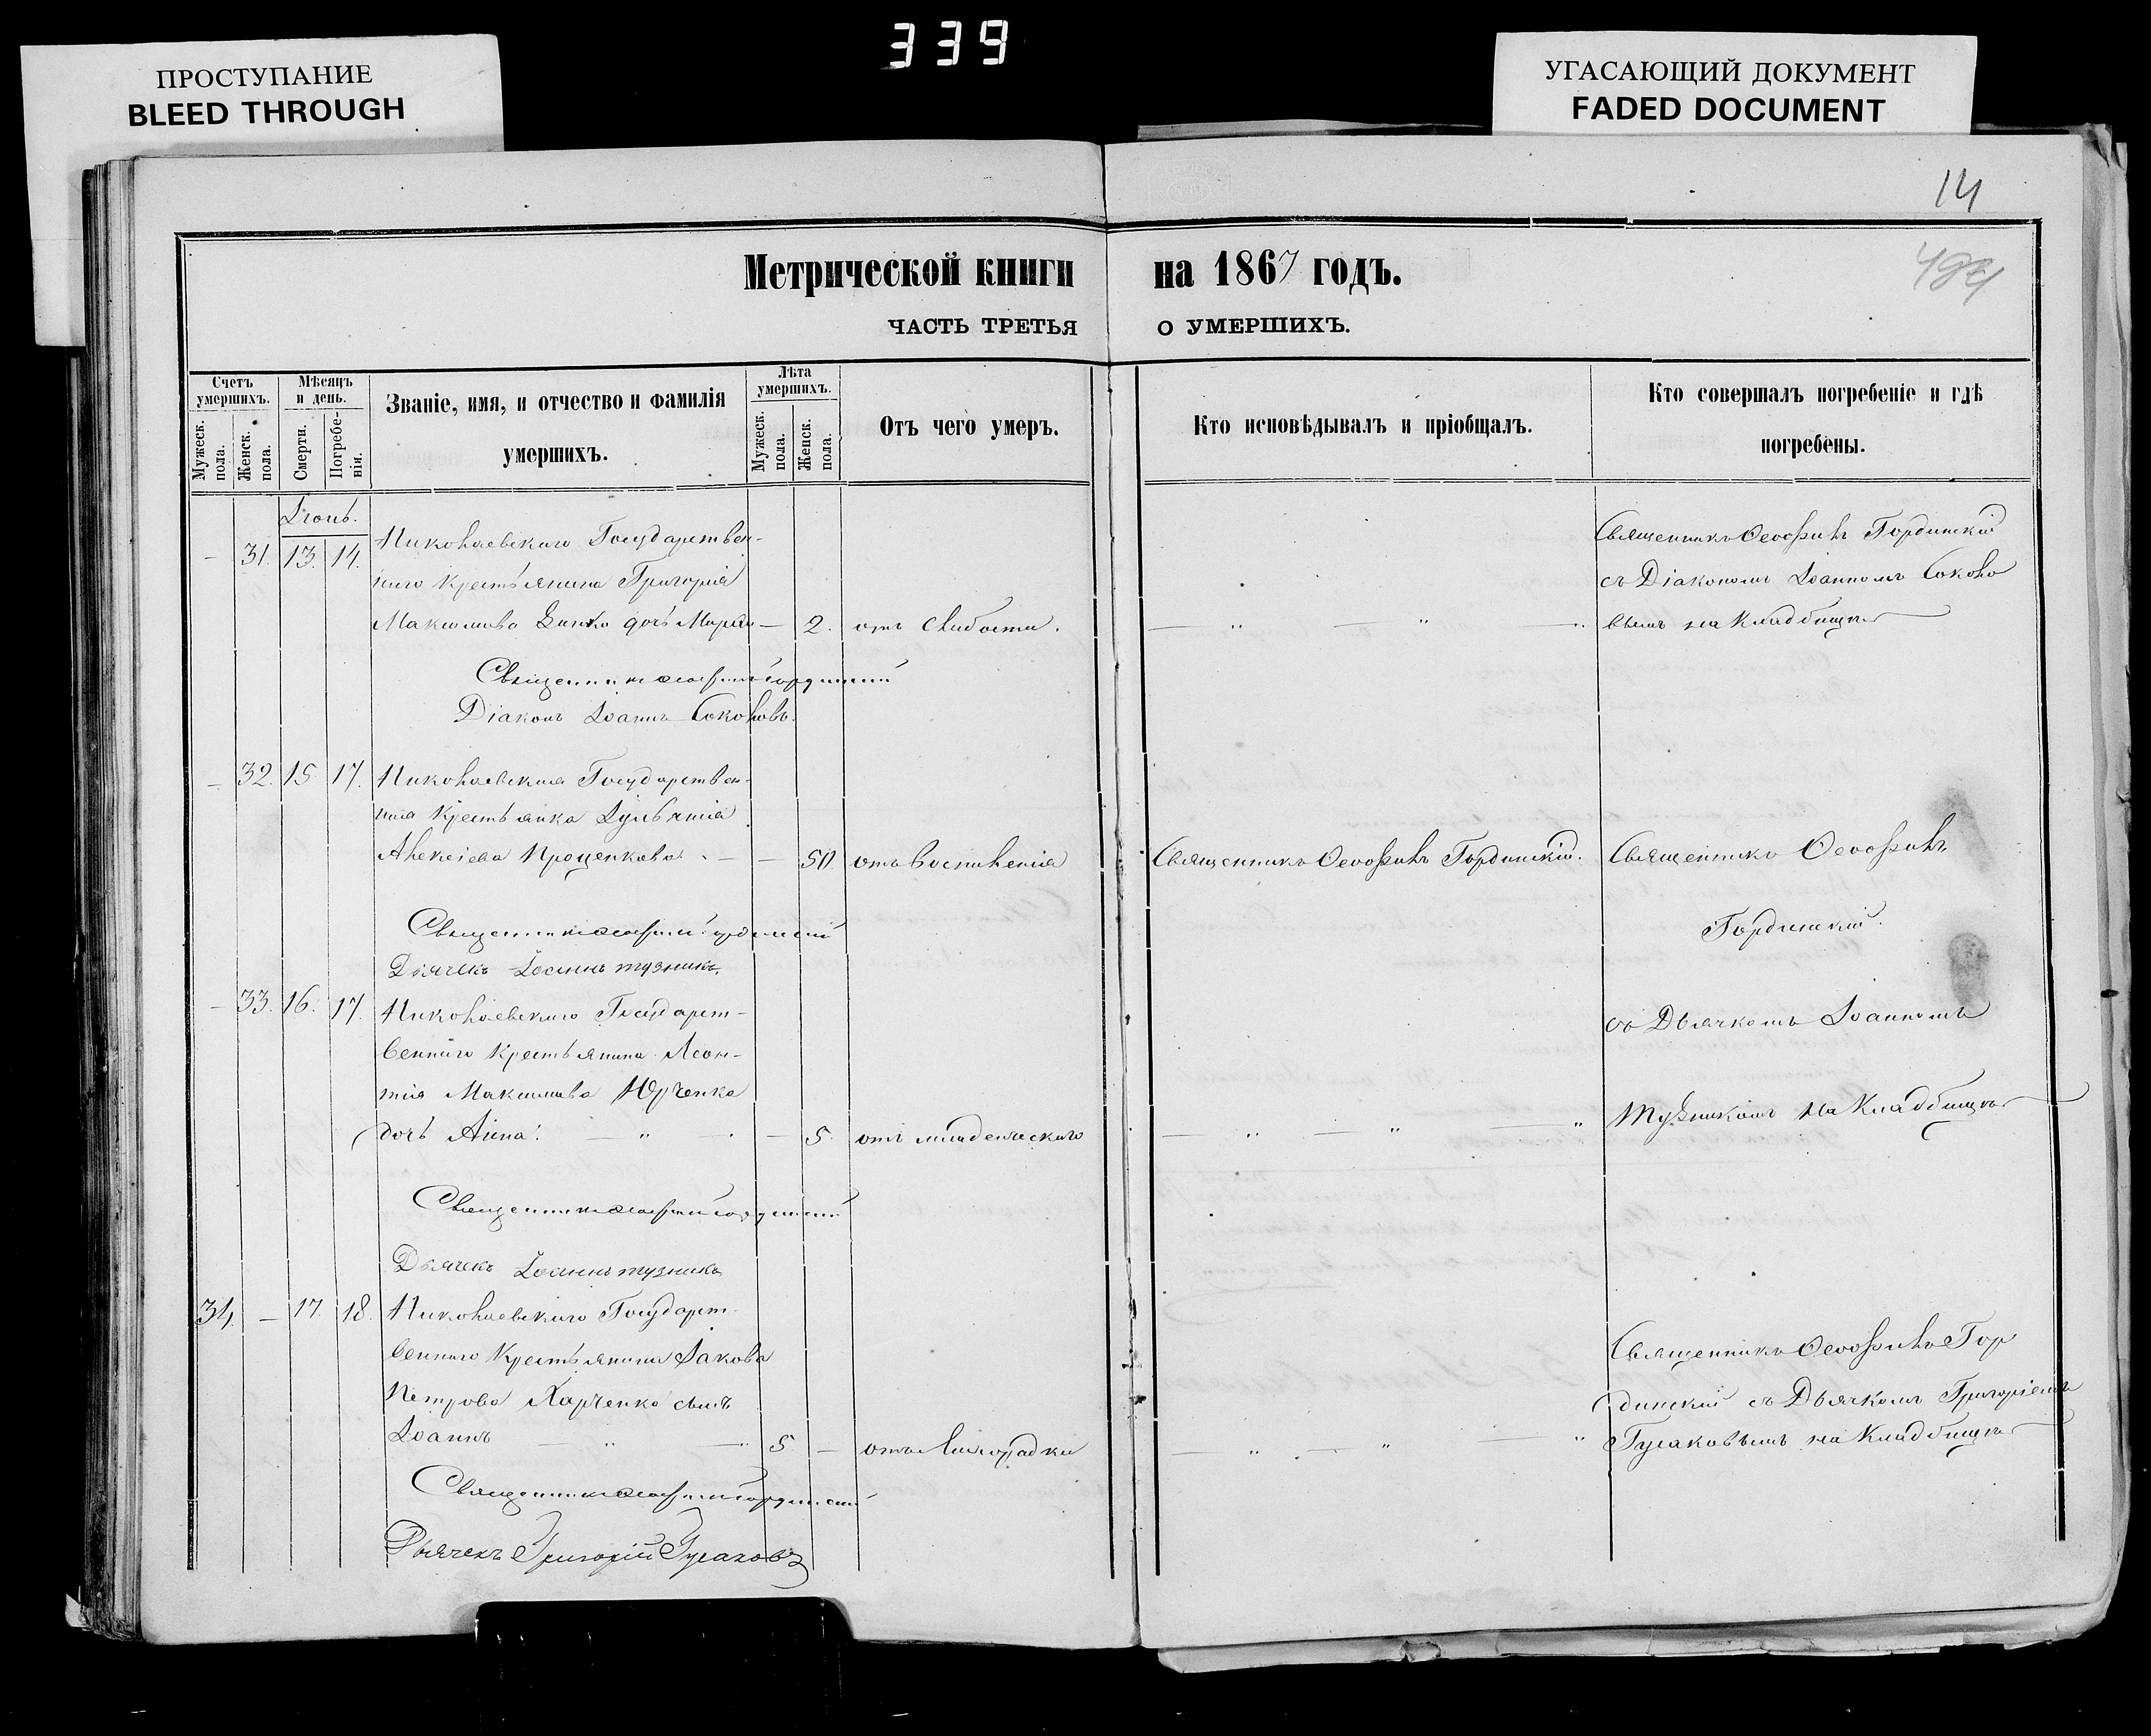 339
ПРОСТУПАНИЕ
BLEED THROUGH
УГАСАЮЩИЙ ДОКУМЕНТ
FADED DOCUMENT
14
Метрической книги на 1867 годъ.
ЧАСТЬ ТРЕТЬЯ О УМЕРШИХЪ.
Счетъ умершихъ.
Мужеск. пола.
Женск. пола.
Мѣсяцъ и день.
Смерти.
Погребенія.
Званіе, имя, и отчество и фамилія
умершихъ.
Лѣта умершихъ.
Мужеск. пола.
Женск. пола.
Отъ чего умеръ.
Кто исповѣдывалъ и пріобщалъ.
Кто совершалъ погребеніе и гдѣ
погребены.
— 31. 13. 14. Николаевскаго Государствен-
наго крестьянина Григорія
Максимова дочь Марія — 2. отъ слабости.
Священникъ Ѳеофилъ Гординскій
съ Діакономъ Іоанномъ Соколо
вымъ на кладбищѣ
Священникъ Ѳеофилъ Гординскій
Діаконъ Іоаннъ Соколовъ.
— 32. 15 17. Николаевская Государствен-
ная крестьянка
Алексіева Проценкова. — — 50. отъ воспаленія
Священникъ Ѳеофилъ Гординскій.
Священникъ Ѳеофилъ
Гординскій.
Священникъ Ѳеофилъ Гординскій
Дьячекъ Іоаннъ Тузникъ.
— 33. 16. 17. Николаевскаго Государст-
веннаго крестьянина Леон-
тія Максимова Юрченка
дочь Анна. — " — — 5. отъ младенческаго
съ Дьячкомъ Іоанномъ
Тузникомъ на кладбищѣ
Священникъ Ѳеофилъ Гординскій
Дьячекъ Іоаннъ Тузникъ
34. — 17. 18. Николаевскаго Государст-
веннаго крестьянина Іакова
Петрова Харченка сынъ
Іоаннъ — " — 5 — отъ лихорадки
Священникъ Ѳеофилъ Гор
динскій съ Дьячкомъ Григоріемъ
Гусаковымъ на кладбищѣ
Священникъ Ѳеофилъ Гординскій
Дьячекъ Григорій Гусаковъ